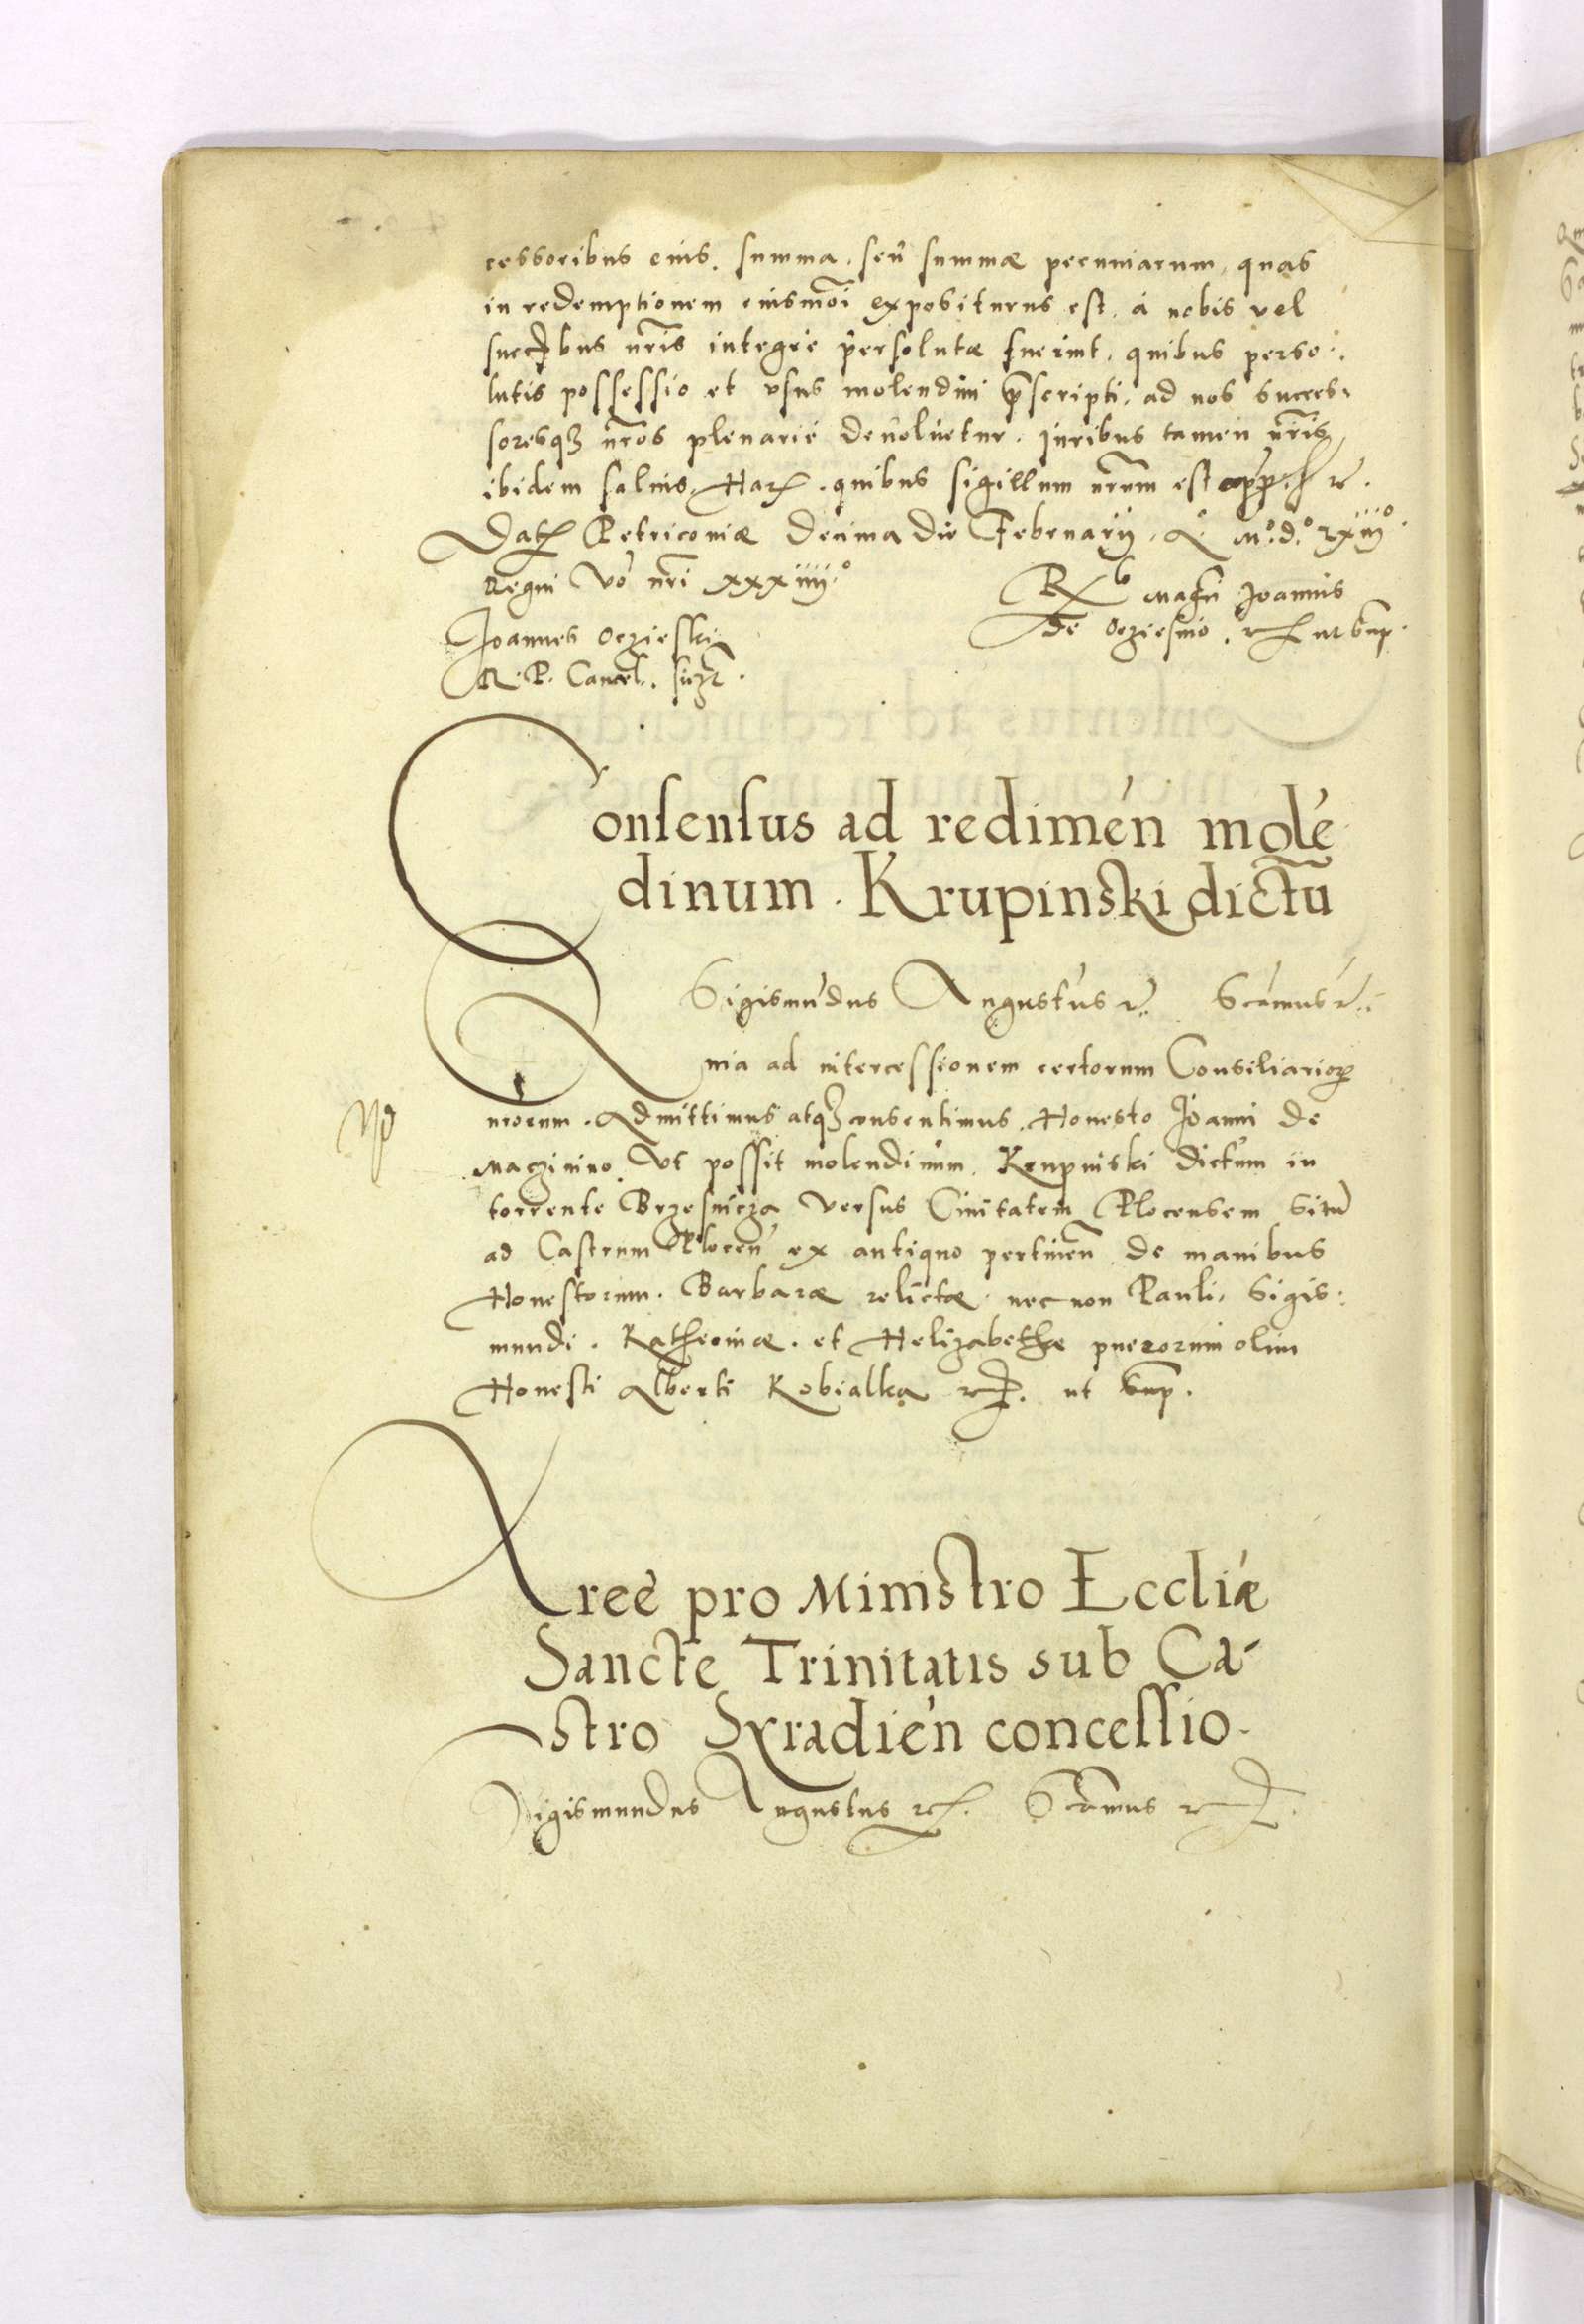 cessoribus eius. summa. seu summæ pecuniarum, quas
in redemptionem eiusmōi expositurus est. à nobis vel
succ̄bus nr̄is integre persolutæ fuerint. quibus perso:
lutis possessio et vsus molendini p̄scripti. ad nos succes:
soresqꝫ nr̄os plenarie deuoluetur. juribus tamen nr̄is
ibidem saluis. Har. quibus sigillum nr̄um est app. etc.
Dat Petricouiæ decima die Februarij. Aº Mº.dº.lxiiijº.
Regni vo nr̄i xxxiiii.º
Rb Magn Joannis
de Oczieszino. etc ut sup.
Joannes Oczieski
R. P. Cancel. ss̄t.
Consensus ad redimen mole
dinum. Krupinski dictū
Sigismūdus Augustus etc. Scimus etc.
Quia ad intercessionem certorum Consiliarioꝝ
nr̄orum. Admittimus atqꝫ consentimus. Honesto Joanni de
Maczinino. Vt possit molendinum. Krupinski dictum in
torrente Brzesnicza versus Ciuitatem Plocensem situ
ad Castrum Plocen ex antiquo pertinen. de manibus
Honestorum. Barbaræ relictæ. nec non Pauli, Sigis:
mundi. Katherinæ. et Helizabethæ puerorum olim
Honesti Alberti Kobialka etc. ut sup.
Areę pro Ministro Eccliæ
Sancte Trinitatis sub Ca-
stro Syradien concessio.
Sigismundus Augustus etc. Scimus etc.